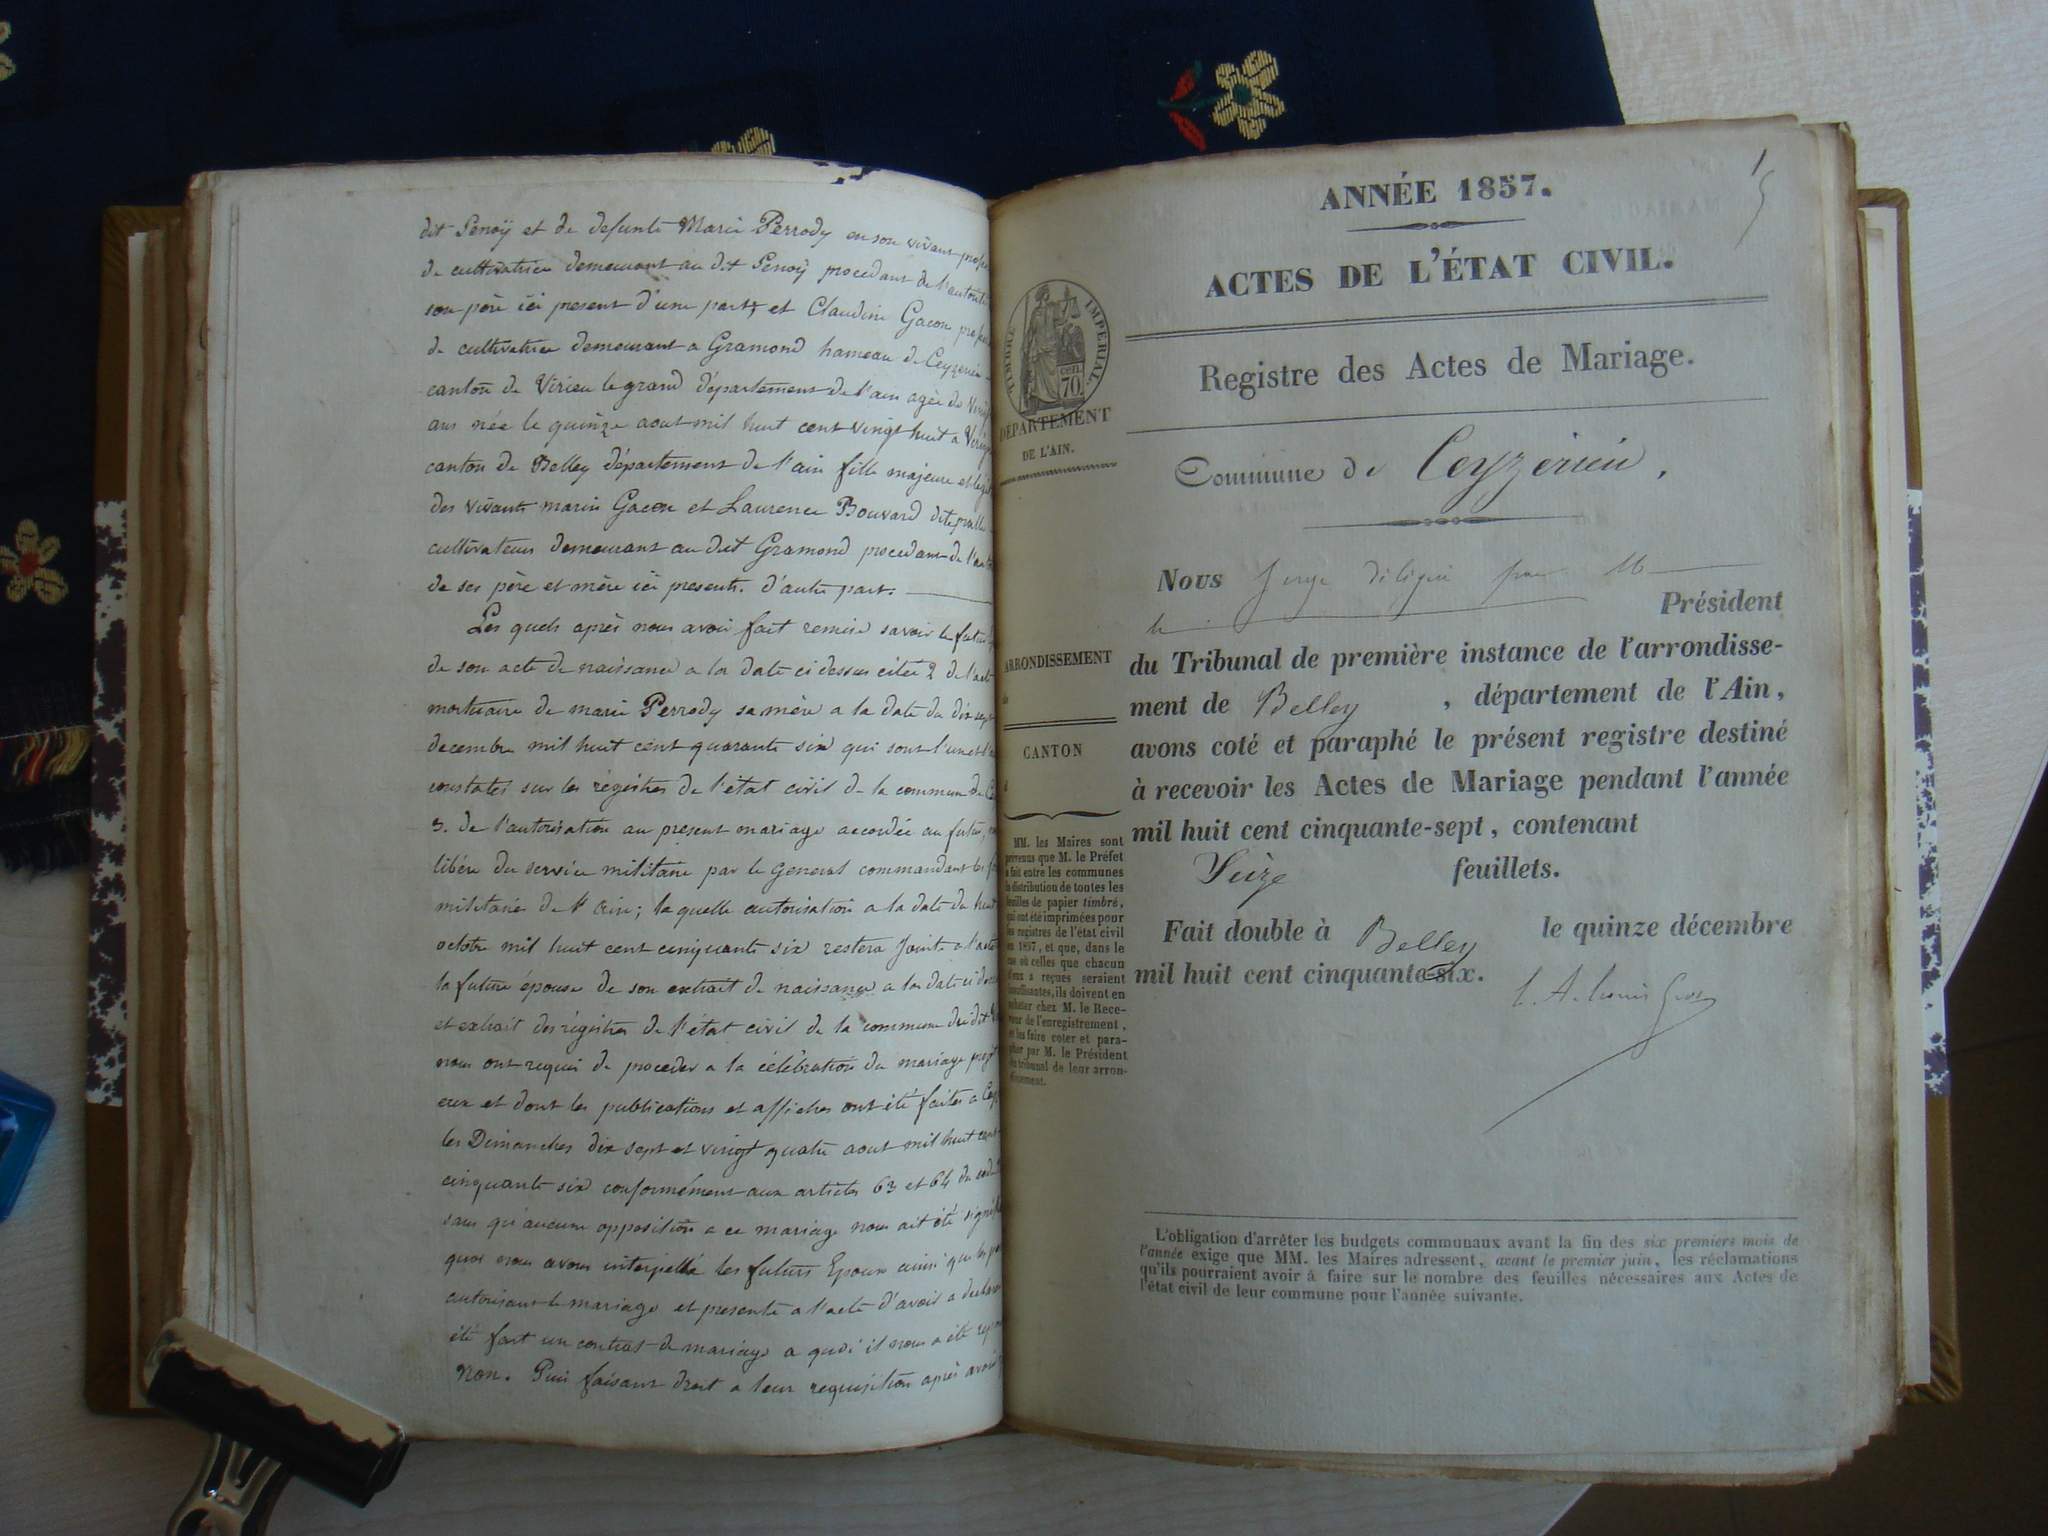 dit Penoÿ et de defunte Marie Perrody en son vivant
de cultivatrice demeurant au dit Penoÿ procedant de l'autorité
son père ici present d'une part, et Claudine Gacon
de cultivatrice demeurant a Gramond hameau de Ceyzerieu
canton de Virieu le grand département de l'ain agée de Vingt
ans née le quinze aout mil huit cent vingt huit a
canton de Belley département de l'ain fille majeure et
des vivants marin Gacon et Laurence Bouvard
cultivateurs demeurant au dit Gramond procedant de
de ses père et mère ici presents. d'autre part.
Les quels après nous avoir fait remise savoir le futur
de son acte de naissance a la date ci dessus citée 2 de l'acte
mortuaire de marie Perrody sa mère a la date du dix sept
decembre mil huit cent quarante six qui sont l'un et
constatés sur les régistres de l'état civil de la commune de
3. de l'autorisation au present mariage accordée au futur,
libéré du service militaire par le General commandant les
militaires de l'Ain; la quelle autorisation a la date du huit
octobre mil huit cent cinquante six restera jointe a l'acte
la future épouse de son extrait de naissance a la date ci
et extrait des régistres de l'état civil de la commune du dit
nous ont requis de proceder a la célébration du mariage
eux et dont les publications et affiches ont été faites a
les Dimanches dix sept et vingt quatre aout mil huit cent
cinquante six conformément aux articles 63 et 64 du
sans qu'aucune opposition a ce mariage nous ait été
quoi nous avons interpellé les futurs Epoux ainsi que les
autorisant le mariage et presents a l'acte d'avoir a declarer
été fait un contrat de mariage a quoi il nous a été
non. Puis faisant droit a leur requisition après avoir
1
5
ANNÉE 1857.
ACTES DE L'ÉTAT CIVIL.
Registre des Actes de Mariage.
TIMBRE IMPERIAL
CEN.
70.
DÉPARTEMENT
DE L'AIN.
Commune de Ceyzerieu,
Nous Juge délégué par M
le Président
du Tribunal de première instance de l'arrondisse-
ment de Belley, département de l'Ain,
avons coté et paraphé le présent registre destiné
à recevoir les Actes de Mariage pendant l'année
mil huit cent cinquante-sept, contenant
Seize feuillets.
Fait double à Belley le quinze décembre
mil huit cent cinquante-six.
ARRONDISSEMENT
CANTON
MM. les Maires sont
prévenus que M. le Préfet
a fait entre les communes
la distribution de toutes les
feuilles de papier timbré,
qui ont été imprimées pour
les registres de l'état civil
en 1857, et que, dans le
cas où celles que chacun
d'eux a reçues seraient
insuffisantes, ils doivent en
acheter chez M. le Rece-
veur de l'enregistrement,
et les faire coter et para-
pher par M. le Président
du tribunal de leur arron-
dissement.
L'obligation d'arrêter les budgets communaux avant la fin des six premiers mois de
l'année exige que MM. les Maires adressent, avant le premier juin, les réclamations
qu'ils pourraient avoir à faire sur le nombre des feuilles nécessaires aux Actes de
l'état civil de leur commune pour l'année suivante.